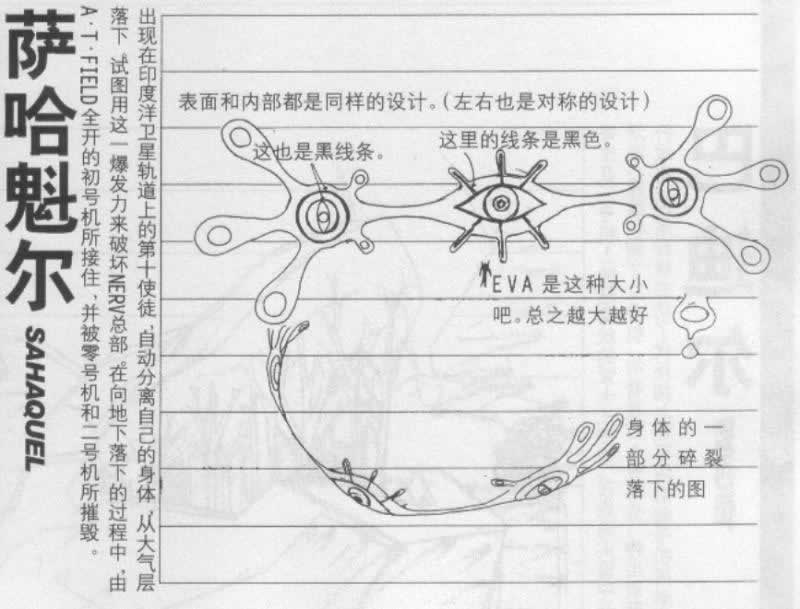 萨哈魁尔
SAHAQUEL
出现在印度洋卫星轨道上的第十使徒,自动分离自己的身体,从大气层
落下,试图用这一爆发力来破坏NERV总部。在向地下落下的过程中,由
A·T·FIELD全开的初号机所接住,并被零号机和二号机所摧毁。
表面和内部都是同样的设计。(左右也是对称的设计)
这也是黑线条。
这里的线条是黑色。
EVA是这种大小
吧。总之越大越好
身体的一
部分碎裂
落下的图